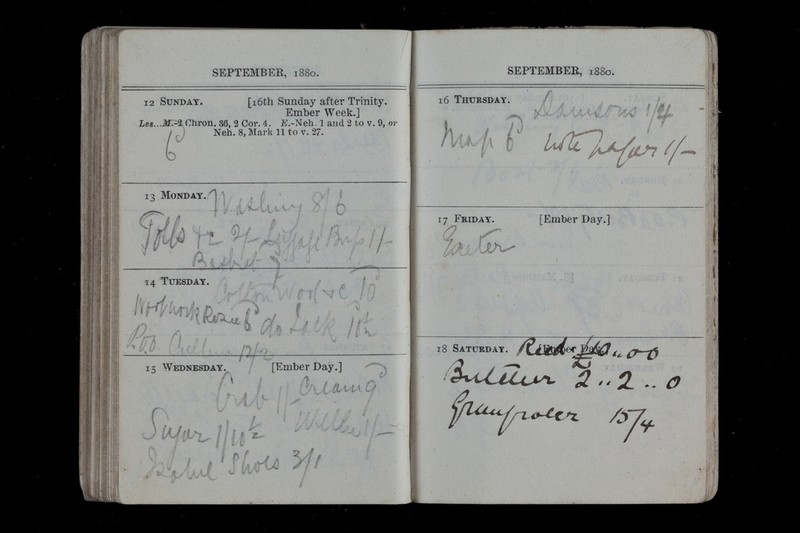 SEPTEMBER, 1880.
12 SUNDAY. [16th Sunday after Trinity.
Ember Week.]
Les...M.-2 Chron. 36, 2 Cor. 4. E.-Neh. 1 and 2 to v. 9, or
Neh. 8, Mark 11 to v. 27.
6d
13 MONDAY. Washing 8/6
Tolls &c 2/- Luggage Bus 1/-
Basket
14 TUESDAY. Cotton Wool &c 10
Woolwork Rosie 6d do Jack 10½
12/2
15 WEDNESDAY. [Ember Day.]
Crab 1/ Cream 9d
Sugar 1/10½ 1/-
Isabel Shoes 3/1
SEPTEMBER, 1880.
16 THURSDAY. Damsons 1/4
Map 6d note paper 1/-
17 FRIDAY. [Ember Day.]
Exeter
18 SATURDAY. [Ember Day.] Recd £10..00
Butcher 2..2..0
Greengrocer 15/4